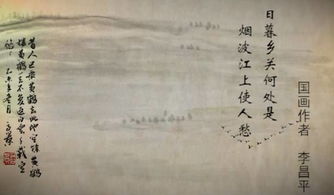 日暮乡关何处是
烟波江上使人愁
国画作者 李昌平
昔人已乘黄鹤去此地空余黄鹤
楼黄鹤一去不复返白云千载空
悠悠